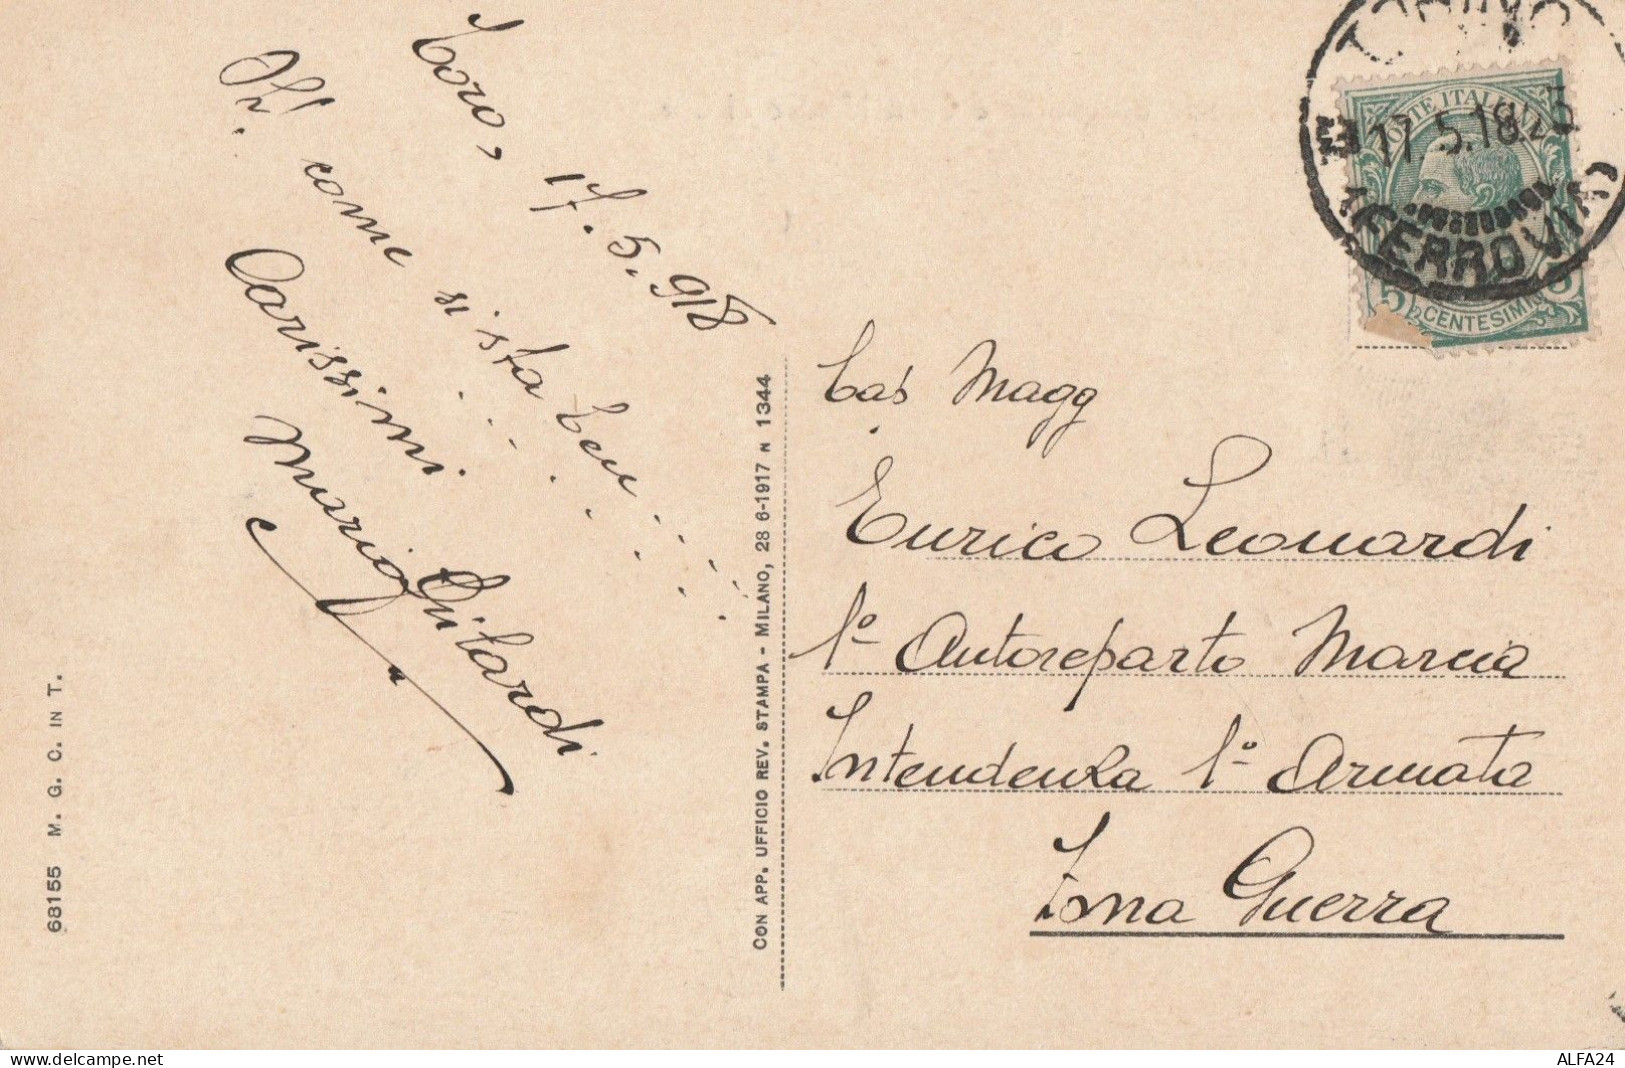 Toro, 17.5.918
Oh! come si sta ben ......
Carissimi
Mario Gilardi
68155 M. G. C. IN T.
CON APP. UFFICIO REV. STAMPA - MILANO, 28 6-1917 N 1344
TORINO
17.5.18
FERROVIA
POSTE ITALIANE
CENTESIMI 5
Magg
Enrico Leonardi
1º Autoreparto Marcia
Intendenza 1º Armata
Zona Guerra
ALFA24
delcampe.net